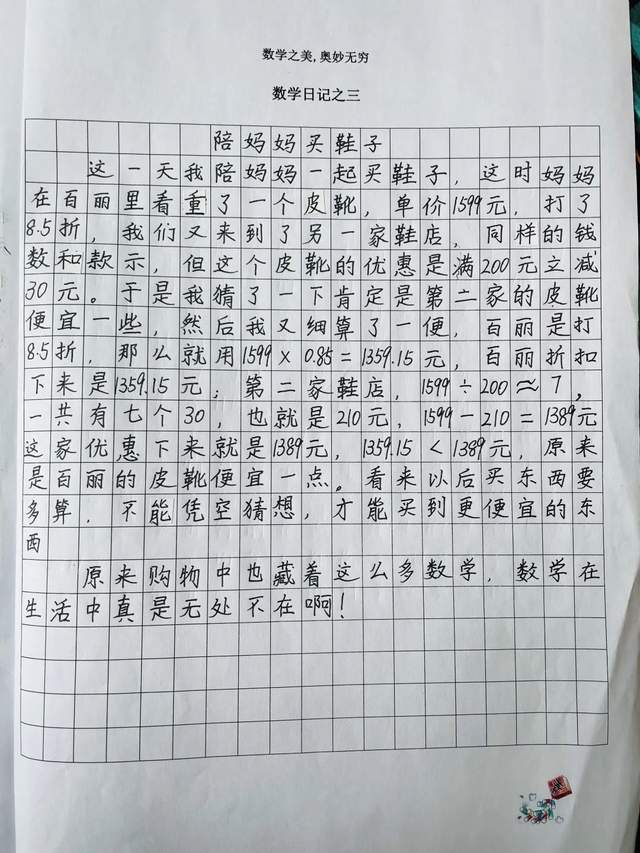 数学之美,奥妙无穷
数学日记之三
陪妈妈买鞋子
这一天我陪妈妈一起买鞋子，这时妈妈
在百丽里看重了一个皮靴，单价1599元，打了
8.5折，我们又来到了另一家鞋店，同样的钱
数和款示，但这个皮靴的优惠是满200元立减
30元。于是我猜了一下肯定是第二家的皮靴
便宜一些，然后我又细算了一便，百丽是打
8.5折，那么就用1599×0.85=1359.15元，百丽折扣
下来是1359.15元；第二家鞋店，1599÷200≈7，
一共有七个30，也就是210元，1599-210=1389元
这家优惠下来就是1389元，1359.15<1389元，原来
是百丽的皮靴便宜一点。看来以后买东西要
多算，不能凭空猜想，才能买到更便宜的东
西
原来购物中也藏着这么多数学，数学在
生活中真是无处不在啊！